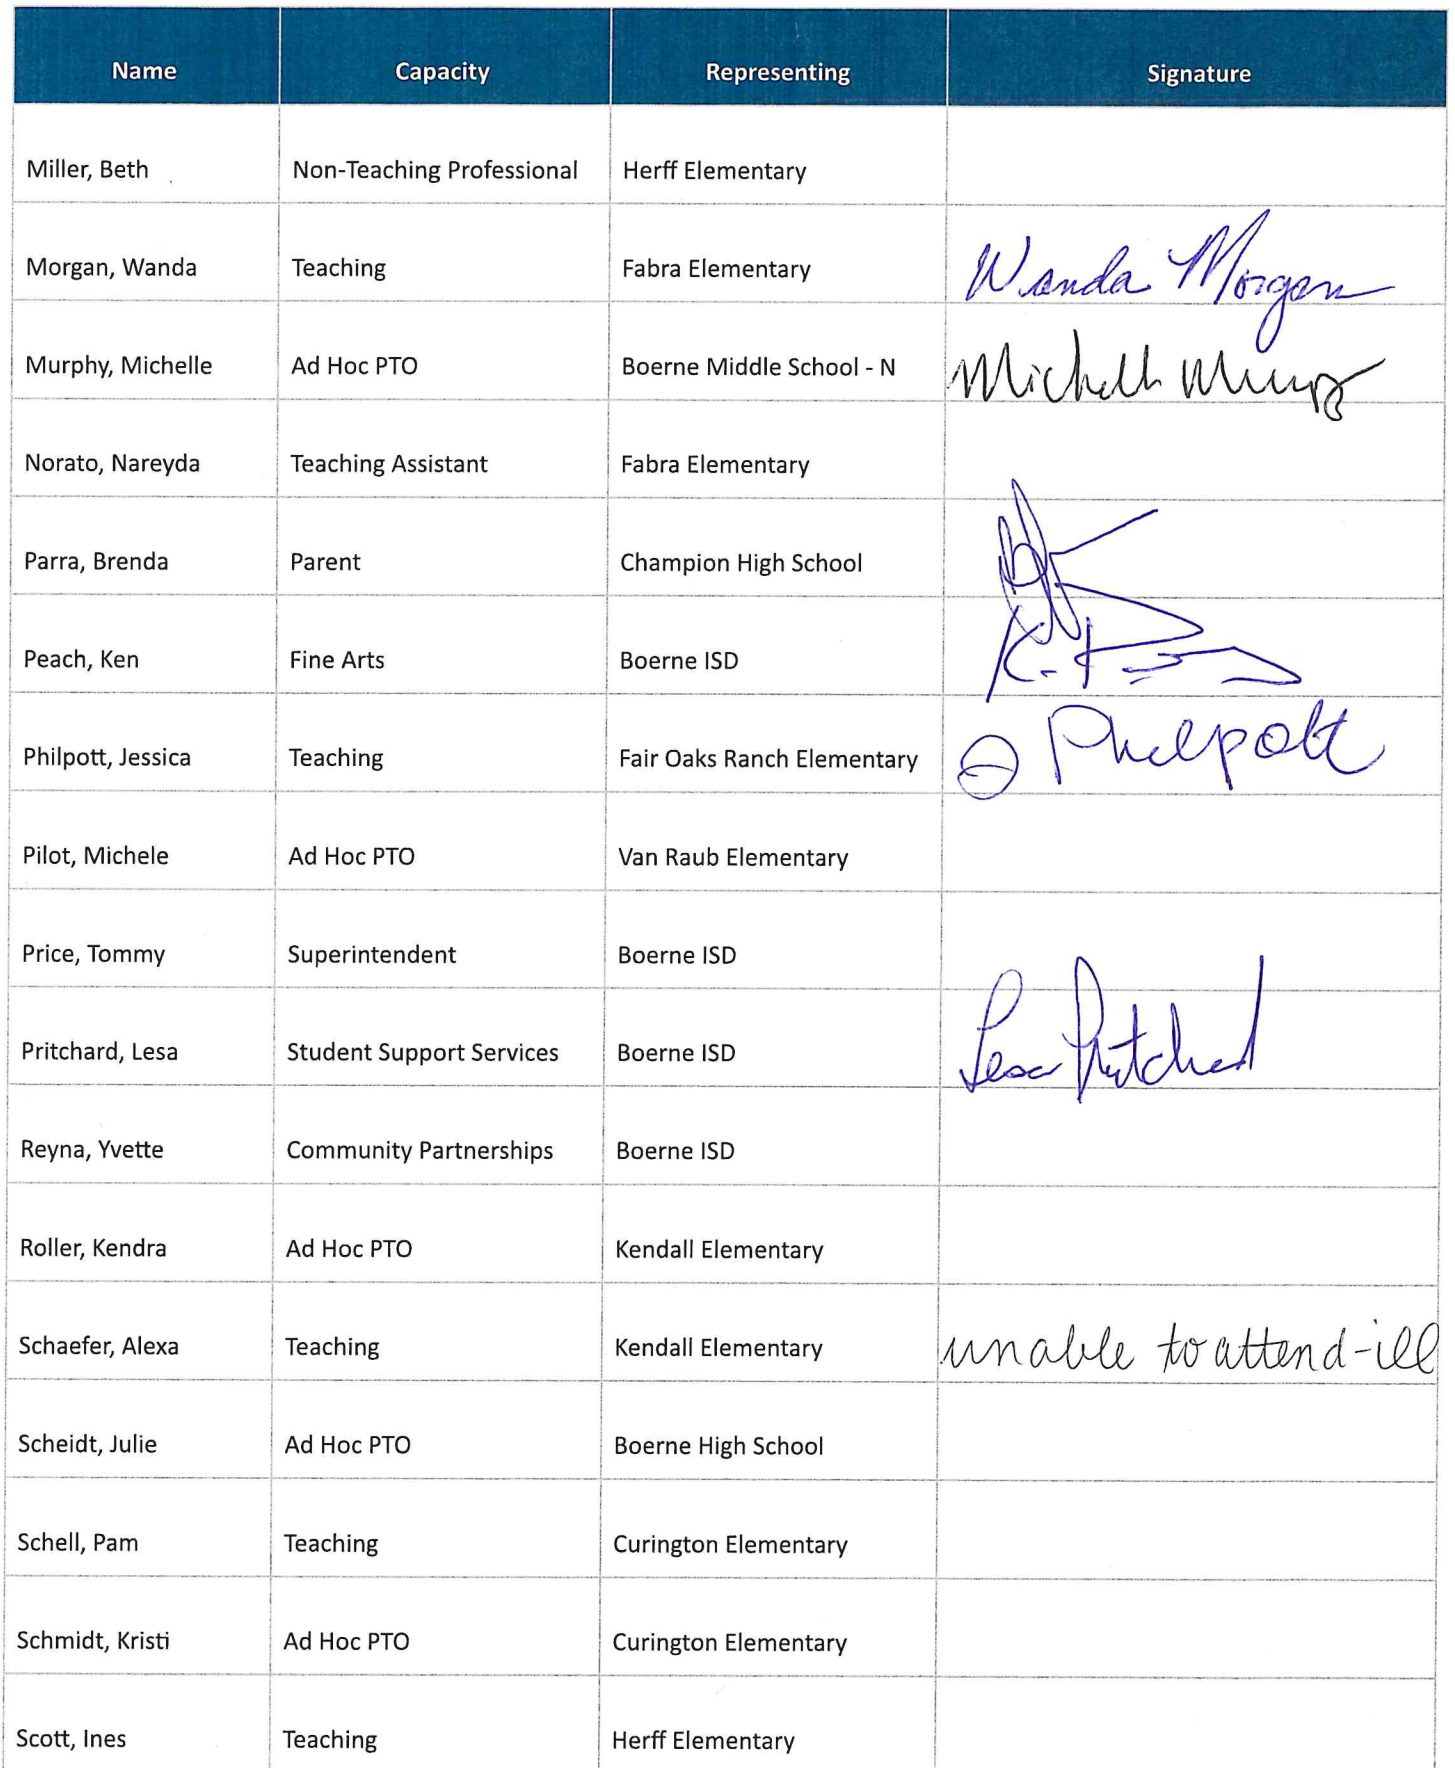 Name Capacity Representing Signature
Miller, Beth Non-Teaching Professional Herff Elementary
Morgan, Wanda Teaching Fabra Elementary Wanda Morgan
Murphy, Michelle Ad Hoc PTO Boerne Middle School - N Michelle Murphy
Norato, Nareyda Teaching Assistant Fabra Elementary
Parra, Brenda Parent Champion High School
Peach, Ken Fine Arts Boerne ISD
Philpott, Jessica Teaching Fair Oaks Ranch Elementary J Philpott
Pilot, Michele Ad Hoc PTO Van Raub Elementary
Price, Tommy Superintendent Boerne ISD
Pritchard, Lesa Student Support Services Boerne ISD Lesa Pritchard
Reyna, Yvette Community Partnerships Boerne ISD
Roller, Kendra Ad Hoc PTO Kendall Elementary
Schaefer, Alexa Teaching Kendall Elementary unable to attend-ill
Scheidt, Julie Ad Hoc PTO Boerne High School
Schell, Pam Teaching Curington Elementary
Schmidt, Kristi Ad Hoc PTO Curington Elementary
Scott, Ines Teaching Herff Elementary